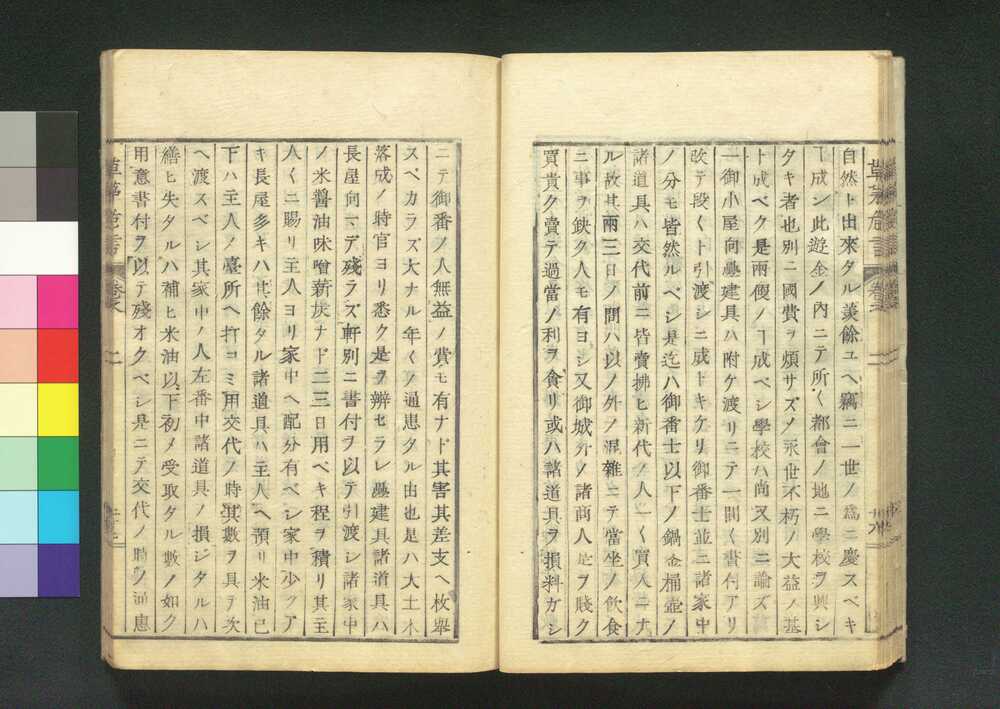 自然ト出來タル羨餘ユヘ竊ニ一世ノ爲ニ慶スベキ
ヿ成ン此遊金ノ內ニテ所〱都會ノ地ニ學校ヲ興シ
タキ者也別ニ國費ヲ煩サズメ永世不朽ノ大益ノ基
ト成ベク是兩便ノヿ成ベシ學校ハ尚又別ニ論ズ
一御小屋向疊建具ハ附ケ渡リニテ一間〱書付アリ
改テ段〱ト引渡シニ成トキケリ御番士並ニ諸家中
ノ分モ皆然ルベシ是迄ハ御番士以下ノ鍋金桶壺ノ
諸道具ハ交代前ニ皆賣拂ヒ新代ノ人一〱買入ニナ
ル故其兩三日ノ間ハ以ノ外ノ混雜ニテ當坐ノ飮食
ニ事ヲ缺ク人モ有ヨシ又御城外ノ諸商人是ヲ賤ク
買貴ク賣テ過當ノ利ヲ貪リ或ハ諸道具ヲ損料ガシ
ニテ御番ノ人無益ノ費モ有ナド其害其差支ヘ枚擧
スベカラズ大ナル年〱ノ通患タル由也是ハ大土木
落成ノ時官ヨリ悉ク是ヲ辨セラレ疊建具諸道具ハ
長屋向マデ殘ラズ軒別ニ書付ヲ以テ引渡シ諸家中
ノ米醬油味噌薪炭ナド二三日用ベキ程ヲ積リ其主
人〱ニ賜リ主人ヨリ家中ヘ配分有ベシ家中少クア
キ長屋多キハ其餘タル諸道具ハ主人ヘ預リ米油已
下ハ主人ノ臺所ヘ打コミ用交代ノ時其數ヲ具テ次
ヘ渡スベシ其家中ノ人左番中諸道具ノ損ジタルハ
繕ヒ失タルハ補ヒ米油以下初メ受取タル數ノ如ク
用意書付ヲ以テ殘オクベシ是ニテ交代ノ時ノ通患